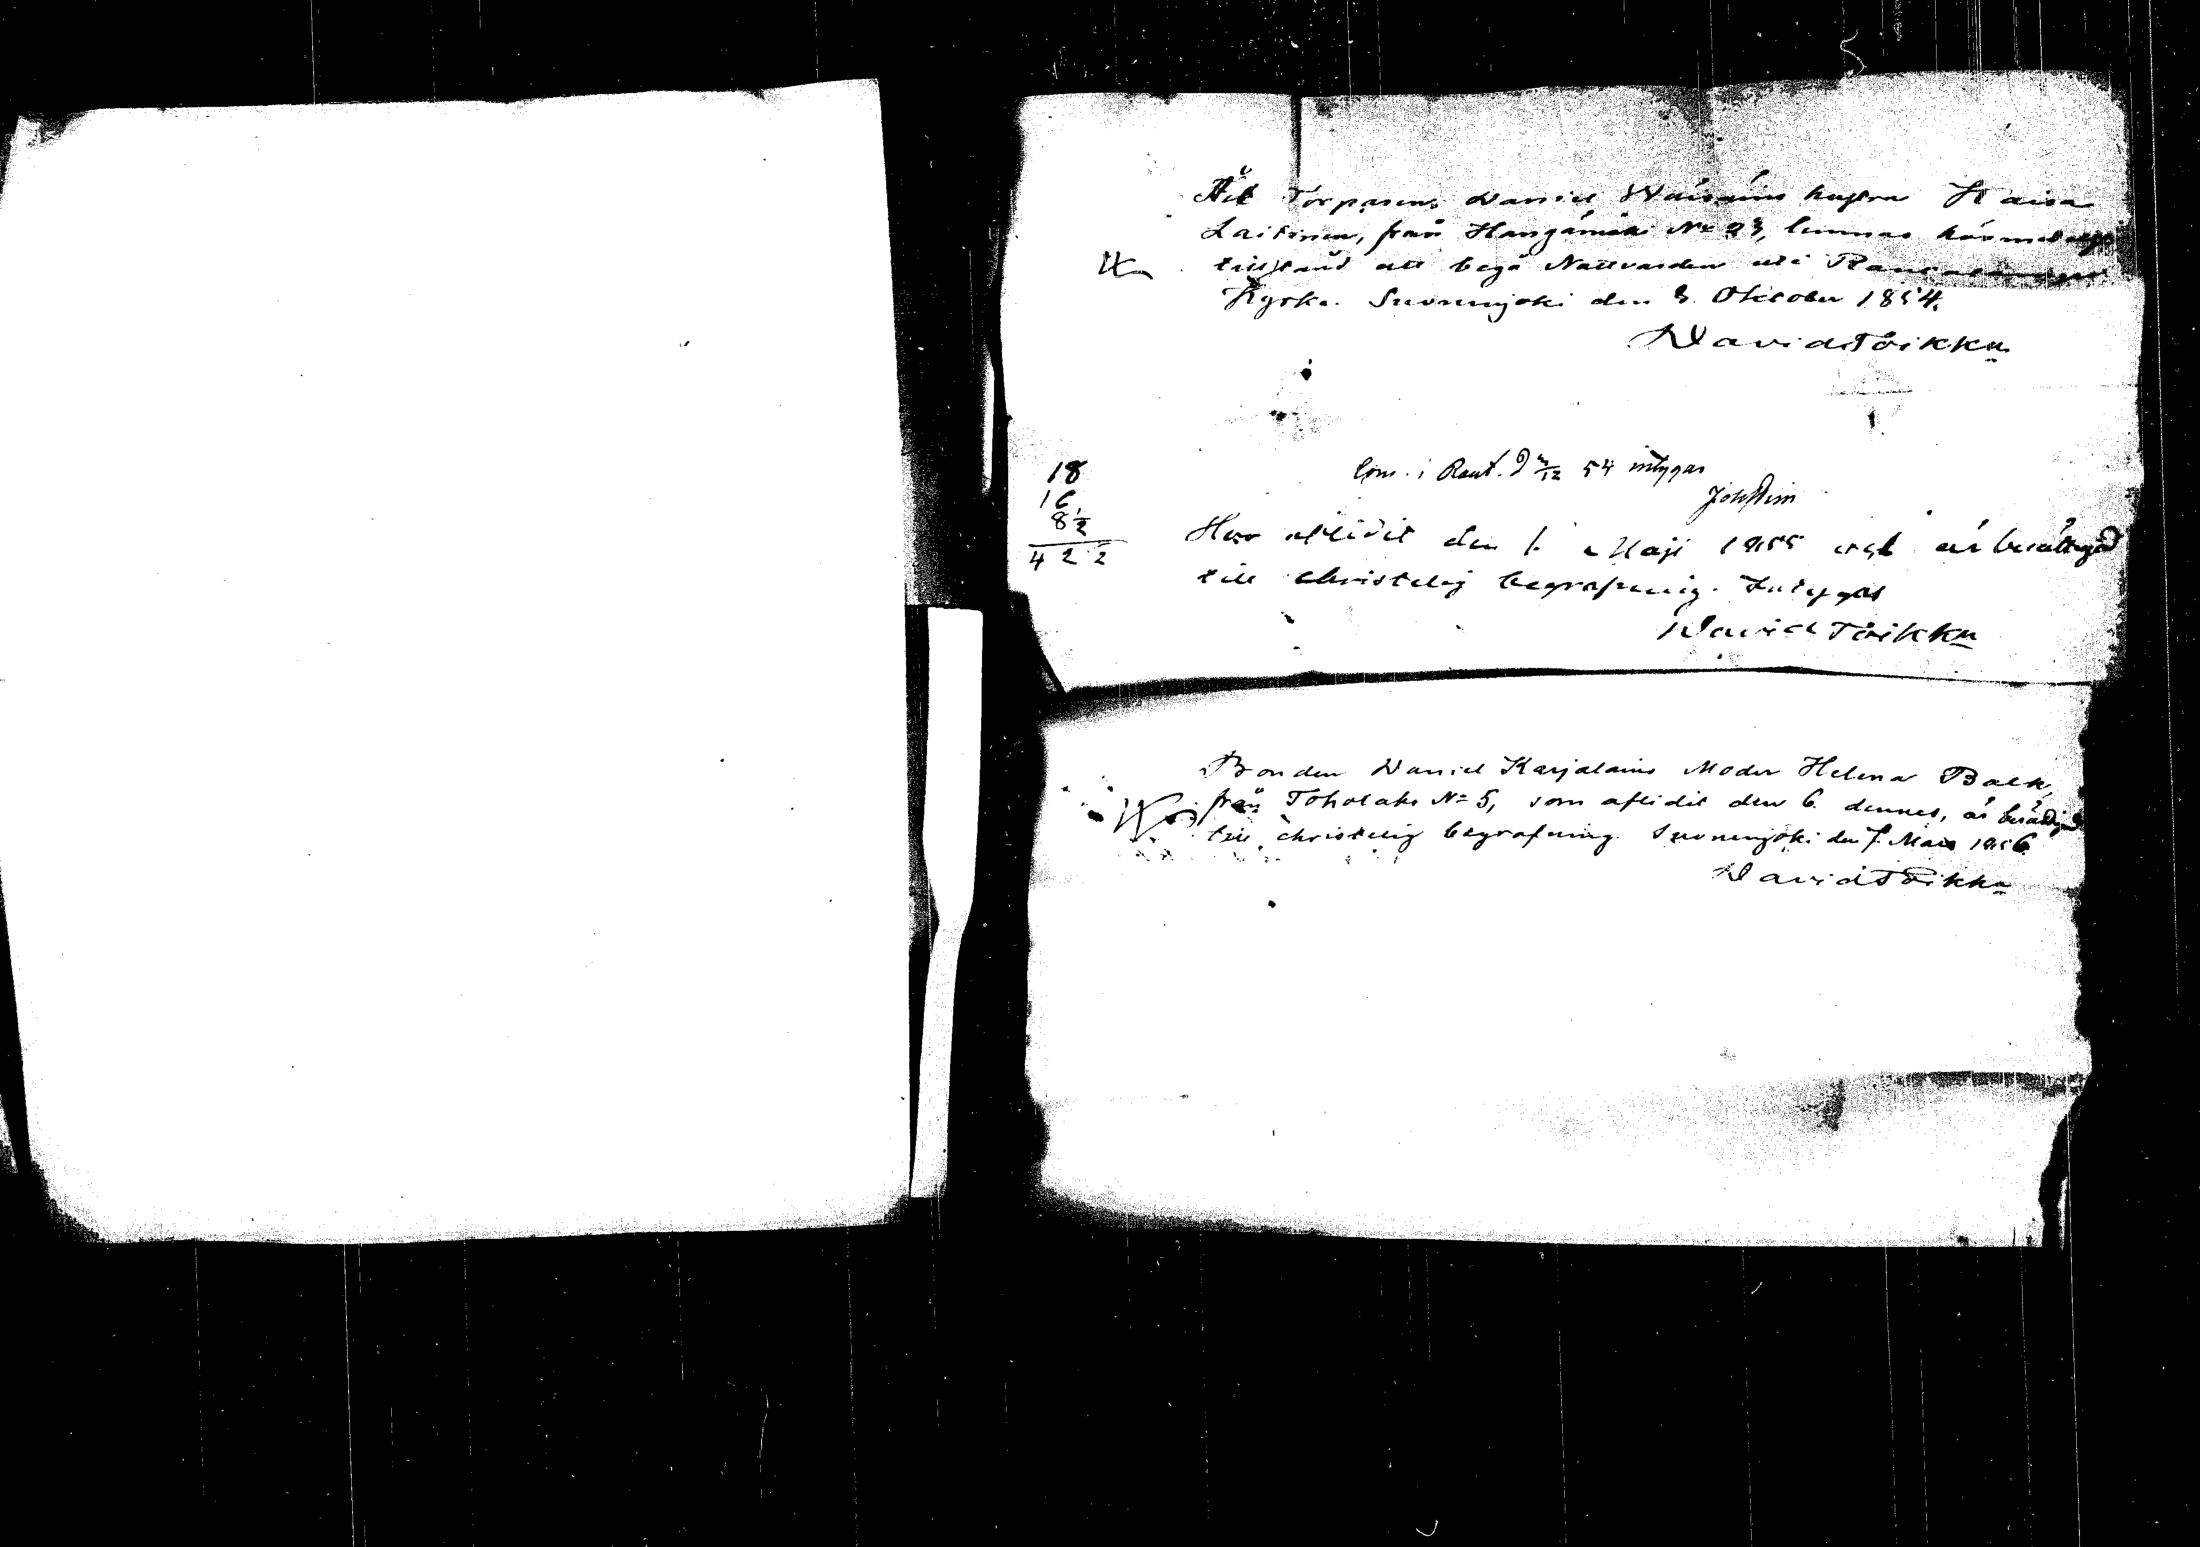 Åt Torparen Daniel Waisains hustru Kaisa
Laitinen, från Hangamäki No 23, lemnas härmedelst
tillstånd att begå Nattvarden uti Rautalampi
Kyrka. Suonenjoki den 3. Oktober 1854.
David Toikka
Com. i Raut. D 3/12 54 intygar
18
16
8 1/2
42 2
Har aflidit den 1. Maji 1855 och är berättigad
till christelig begrafning. Intygas
David Toikka
Bonden Daniel Karjalains Moder Helena Back,
från Toholaks No 5, som aflidit den 6. dennes, är berättigad
till christelig begrafning. Suonenjoki den 7. Mars 1856
David Toikka